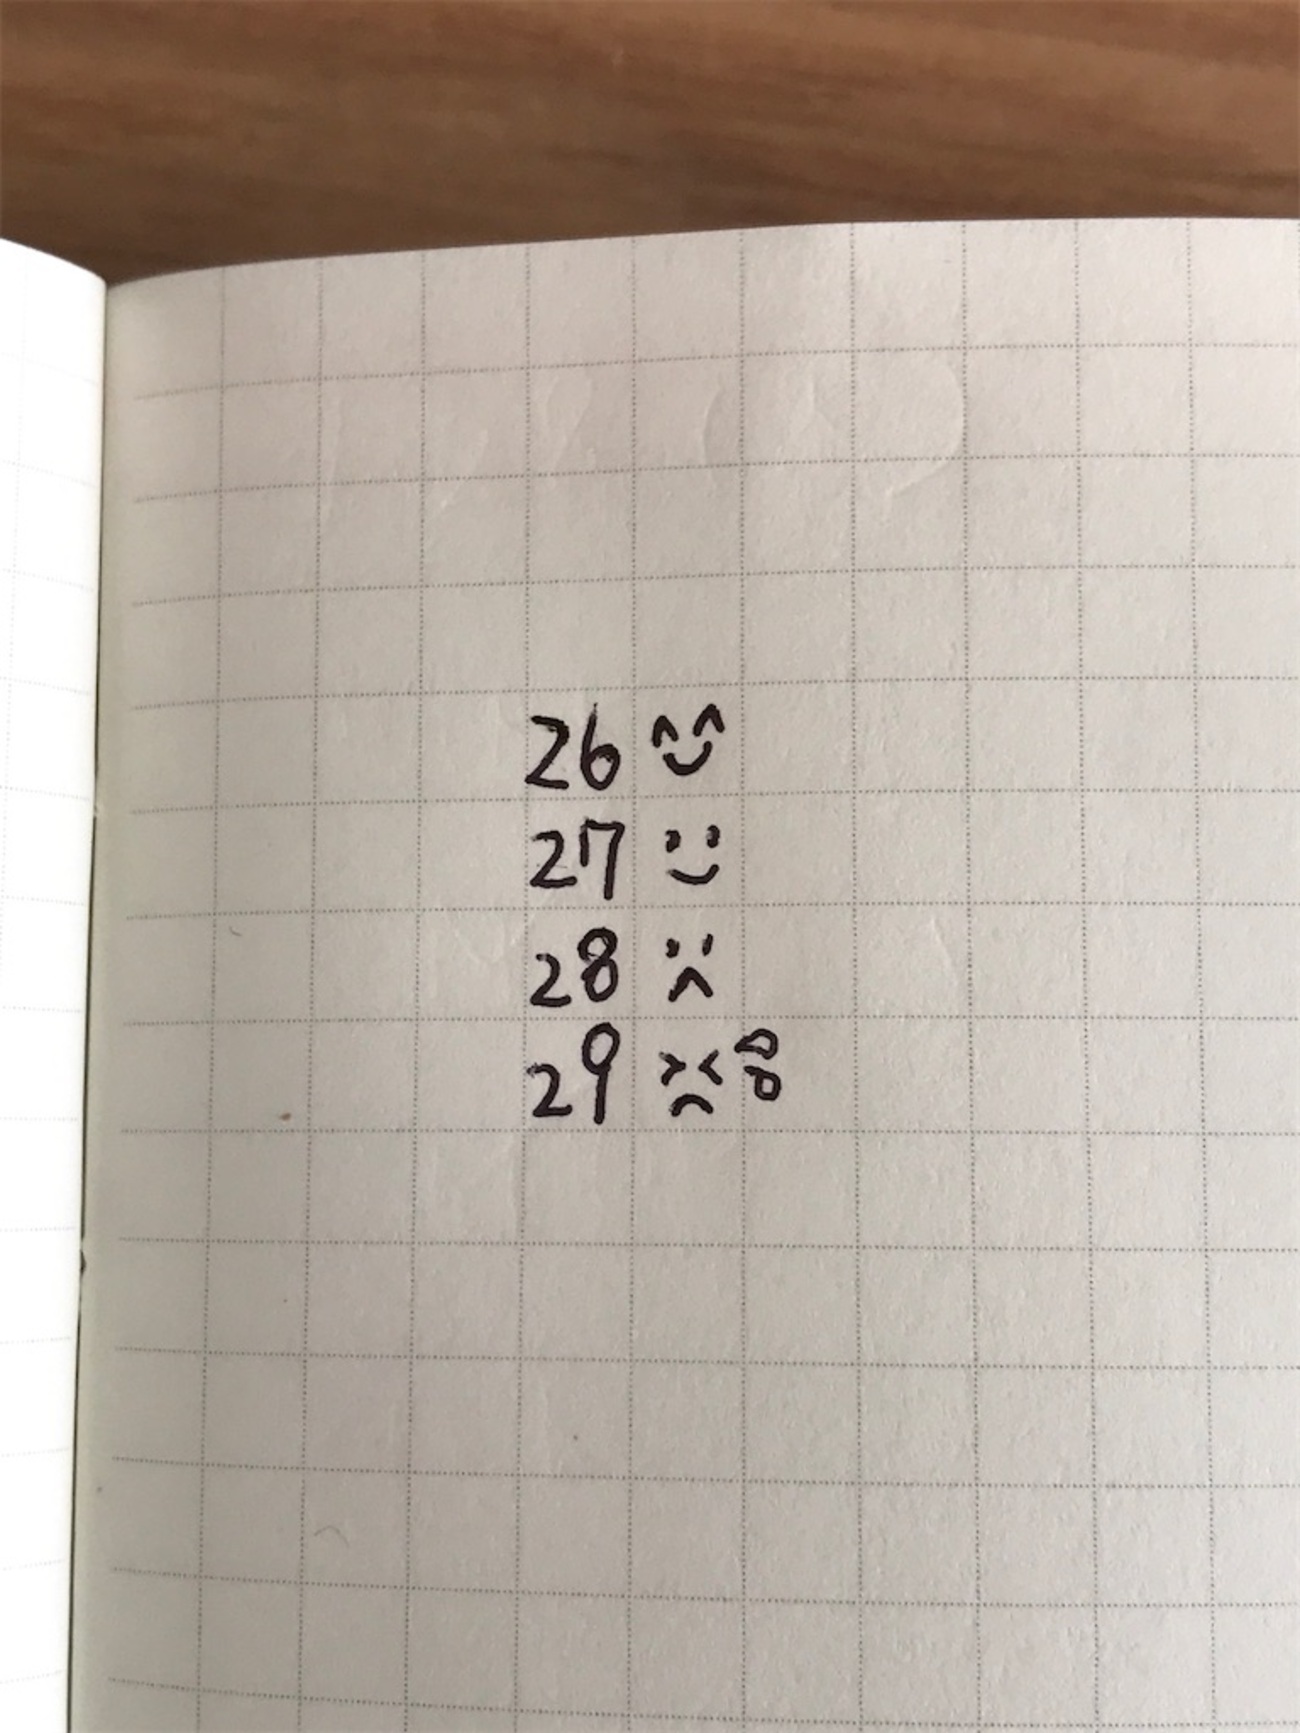 26
27
28
29